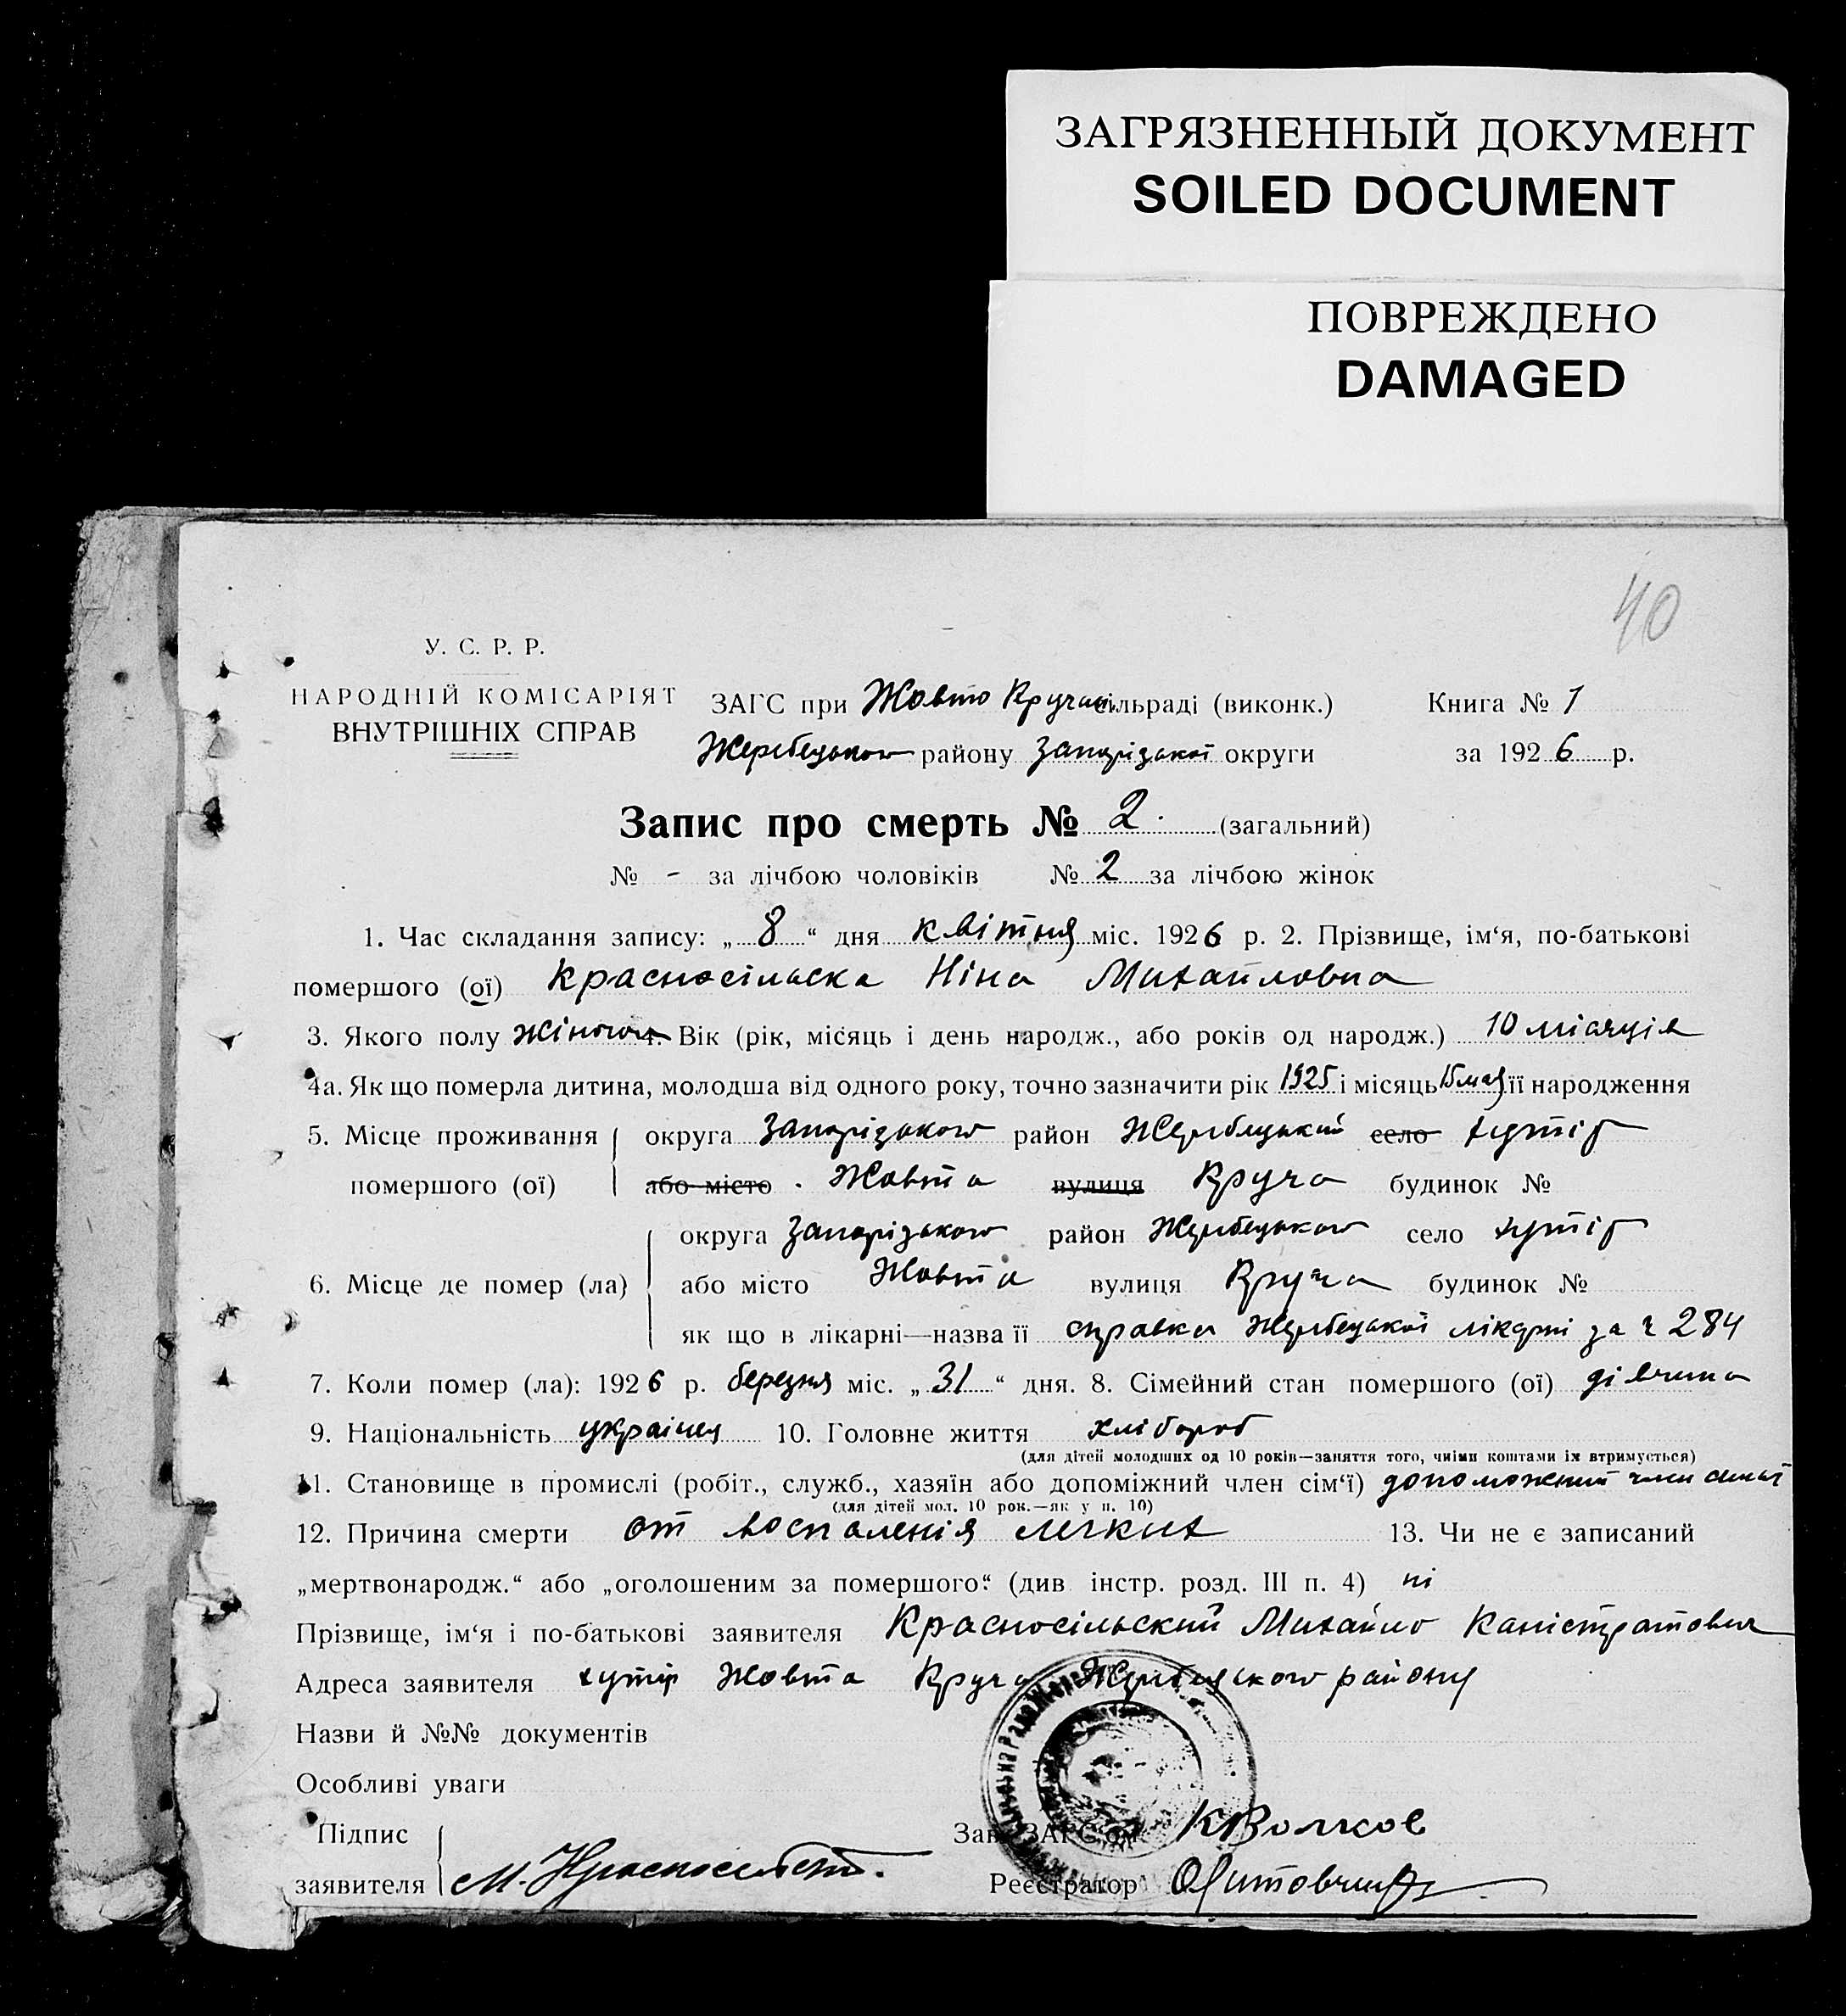 ЗАГРЯЗНЕННЫЙ ДОКУМЕНТ
SOILED DOCUMENT
ПОВРЕЖДЕНО
DAMAGED
40
У. С. Р. Р.
НАРОДНІЙ КОМІСАРІЯТ
ВНУТРІШНІХ СПРАВ
ЗАГС при Жовто Кручан. сільраді (виконк.) Книга № 1
Жеребецького району Запорізької округи за 1926 р.
Запис про смерть № 2. (загальний)
№ - за лічбою чоловіків № 2 за лічбою жінок
1. Час складання запису: „8“ дня квітня міс. 1926 р. 2. Прізвище, ім‘я, по-батькові
помершого (ої) Красносільска Ніна Михайловна
3. Якого полу жіночого 4. Вік (рік, місяць і день народж., або років од народж.) 10 місяців
4а. Як що померла дитина, молодша від одного року, точно зазначити рік 1925 і місяць 15 мая її народження
5. Місце проживання округа Запорізького район Жеребецький село хутір
помершого (ої) або місто . Жовта вулиця Круча будинок №
округа Запорізького район Жеребецького село хутір
6. Місце де помер (ла) або місто Жовта вулиця Круча будинок №
як що в лікарні—назва її справка Жеребецької лікарні за ч 284
7. Коли помер (ла): 1926 р. березня міс. „31“ дня. 8. Сімейний стан помершого (ої) дівчина
9. Національність українц 10. Головне життя хлібороб
(для дітей молодших од 10 років—заняття того, чиїми коштами їх втримується)
11. Становище в промислі (робіт., служб., хазяїн або допоміжний член сім‘ї) допоможний член симї
(для дітей мол. 10 рок.—як у п. 10)
12. Причина смерти от воспаленія легких 13. Чи не є записаний
„мертвонародж.“ або „оголошеним за помершого“: (див. інстр. розд. III п. 4) ні
Прізвище, ім‘я і по-батькові заявителя Красносільский Михайло Каністратович
Адреса заявителя хутір Жовта Круча Жеребецького району
Назви й №№ документів
Особливі уваги
Підпис
заявителя М. Красносельск.
Зав. ЗАГС‘ом КВолков
Реєстратор